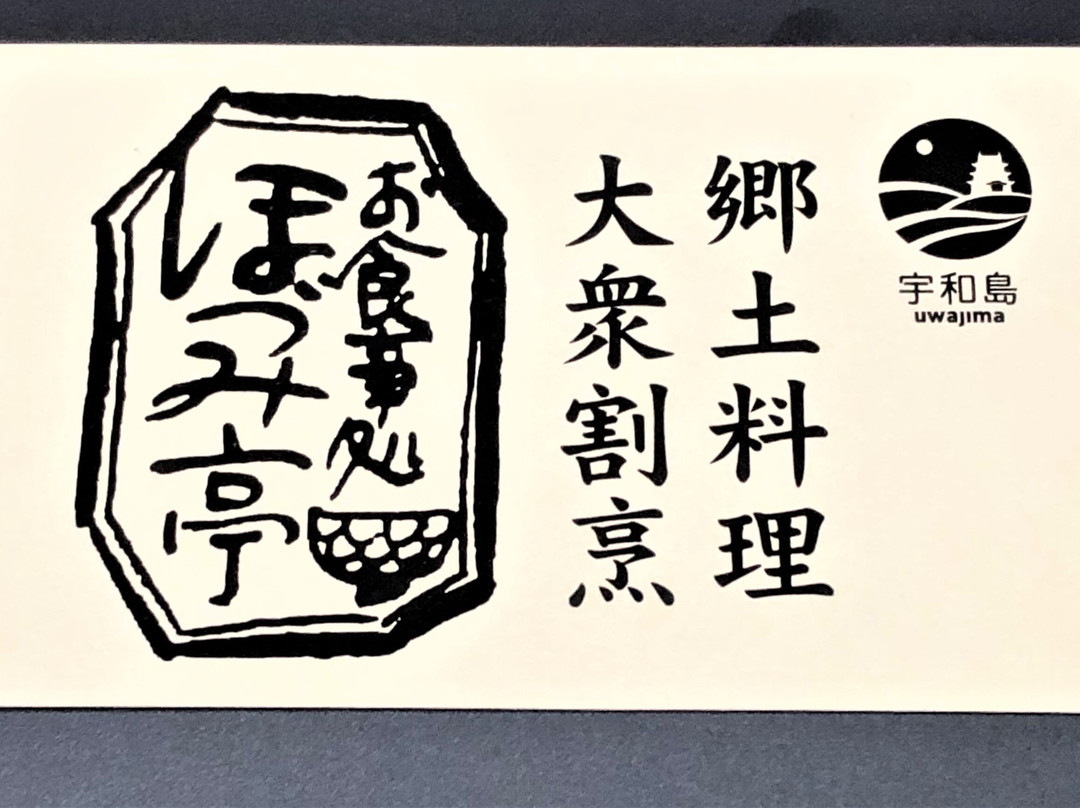 宇和島
uwajima
郷土料理
大衆割烹
お食事処
ほづみ亭